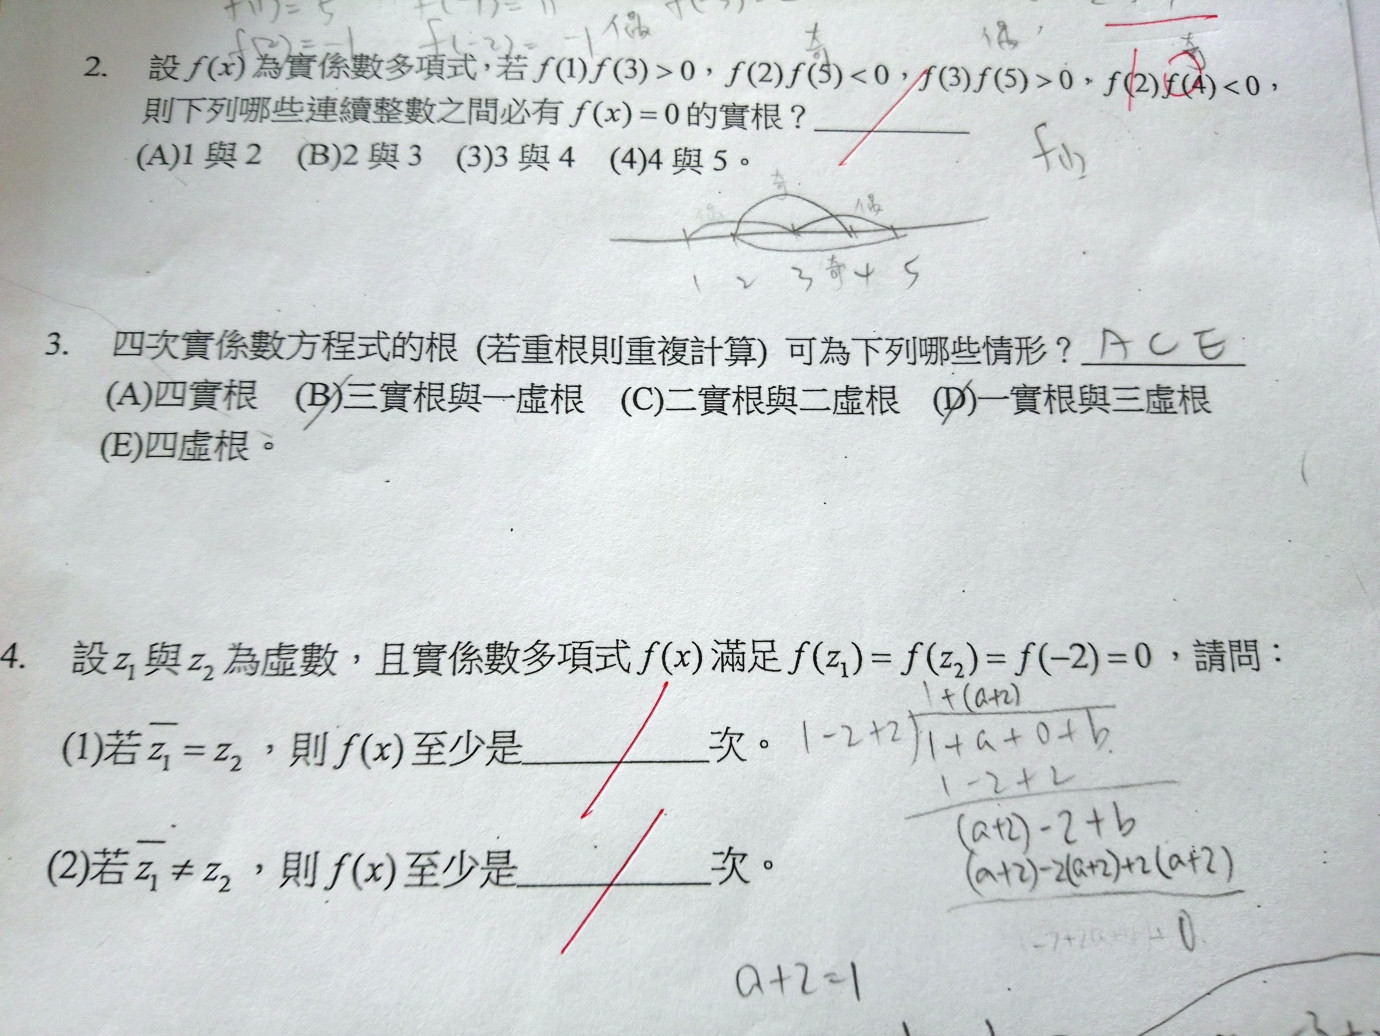 f(1)= 5
f(2)=-1 f(-2)= -1 偶 奇 偶 奇
2. 設 f(x) 為實係數多項式,若 f(1)f(3)>0,f(2)f(5)<0,f(3)f(5)>0,f(2)f(4)<0,
則下列哪些連續整數之間必有 f(x)=0 的實根?
(A)1 與 2 (B)2 與 3 (3)3 與 4 (4)4 與 5。
奇
偶 偶
1 2 3 奇 4 5
3. 四次實係數方程式的根 (若重根則重複計算) 可為下列哪些情形? A C E
(A)四實根 (B)三實根與一虛根 (C)二實根與二虛根 (D)一實根與三虛根
(E)四虛根。
4. 設 z₁ 與 z₂ 為虛數,且實係數多項式 f(x) 滿足 f(z₁)= f(z₂)= f(−2)=0,請問:
1+(a+2)
(1)若 z̅₁ = z₂,則 f(x) 至少是 次。 1-2+2)1+a+0+b
1-2+2
(a+2)-2+b
(2)若 z̅₁ ≠ z₂,則 f(x) 至少是 次。 (a+2)-2(a+2)+2(a+2)
0
a+2=1